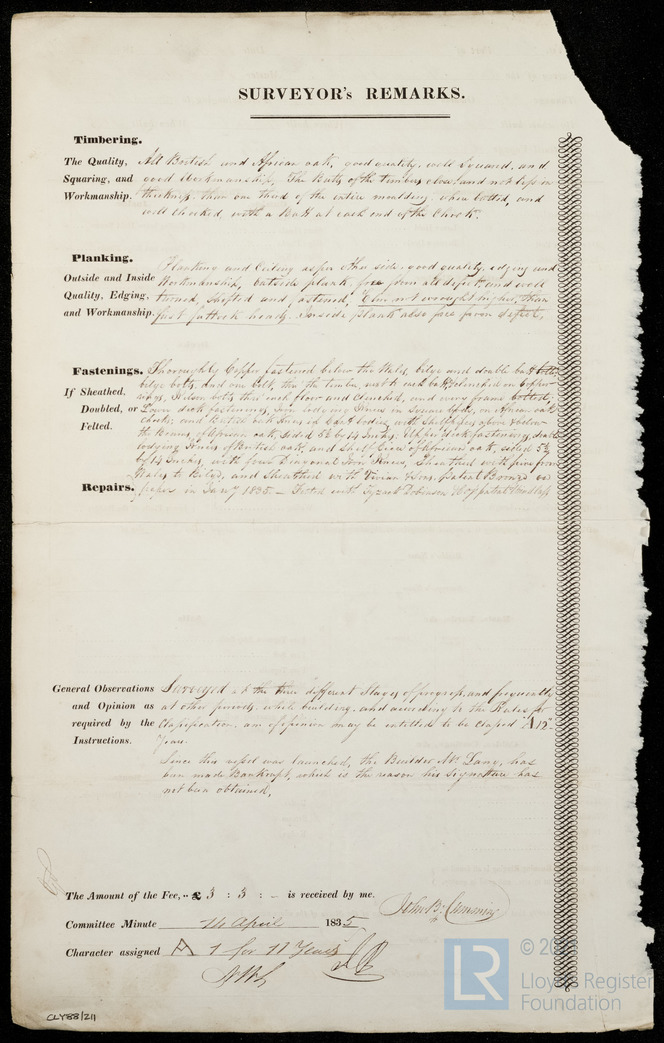 SURVEYOR's REMARKS.
Timbering.
The Quality, Squaring, and Workmanship.
All British and African oak, good quality, well Squared, and
good Workmanship, The Butts of the timbers close, and not less in
thickness than one third of the entire moulding, when bolted, and
well Chocked, with a Butt at each end of the Chock.
Planking.
Outside and Inside Quality, Edging, and Workmanship.
Planking and Ceiling as per other side, good quality, edging and
Workmanship, outside plank, free from all defects and well
turned, shifted and fastened, Elm not wrought higher than
first futtock heads. Inside plank also free from defects,
Fastenings.
If Sheathed, Doubled, or Felted.
Thoroughly Copper fastened below the Wales, bilge and double butt bolts
bilge bolts, and one bolt, thro' the timber, next to each butt, clenched on Copper
rings, Kelson bolts thro' each floor and Clenched, and every frame bolted,
Lower deck fastenings, Iron lodging Knees in Square body, on African oak
chocks, and British oak Knees in Cant bodies with Shelfpieces above & below
the Beams, of African oak, sided 5½ by 14 Inches. Upper deck fastening, double
lodging Knees of British oak, and Shelf Pieces of African oak, sided 5½
by 14 Inches, with four Diagonal Iron Knees, Sheathed with pine from
Wales to Bilge, and Sheathed with Vivian & Sons patent Bronze on
paper in Jany 1835. — Fitted with Tyzack Dobinson & Co's patent Windlass
Repairs.
General Observations and Opinion as required by the Instructions.
Surveyed at the three different Stages of progress, and frequently
at other periods, while building, and according to the Rules for
Classification, am of opinion may be entitled to be Classed "A 12"
Years.
Since this vessel was launched, the Builder Mr Laing, has
been made Bankrupt, which is the reason his Signature has
not been obtained,
The Amount of the Fee, .. £ 3 : 3 : – is received by me.
John B.
Committee Minute 14 April 1835
Character assigned A 1 for 11 Years
CLY88/211
LR
© 20
Lloyd's Register
Foundation